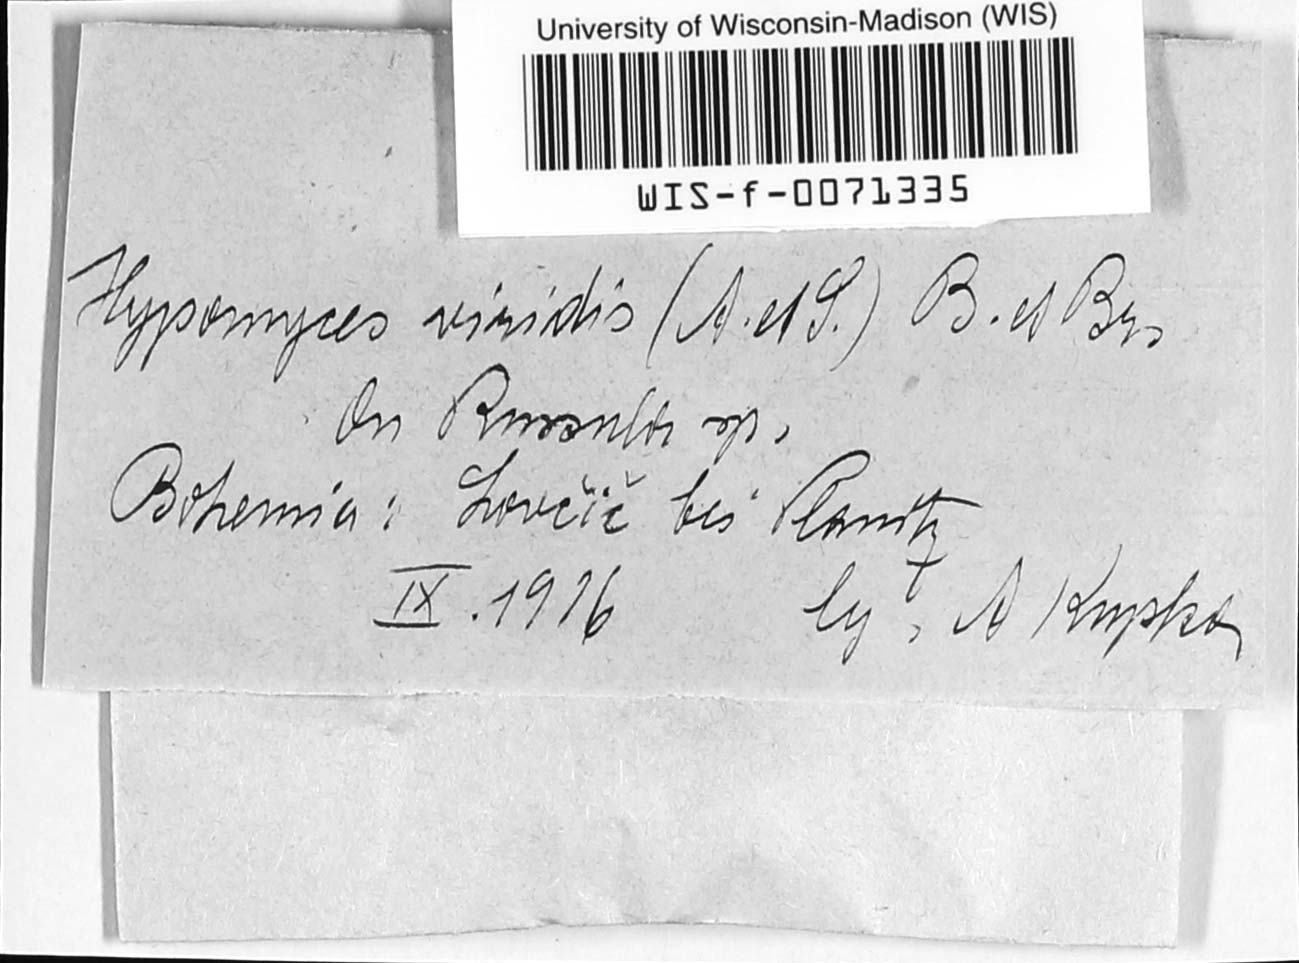 University of Wisconsin-Madison (WIS)
WIS-f-0071335
Hypomyces viridis (A. et S.) B. et Br.
On Russula sp.
Bohemia: Lovčič bei Planitz
IX. 1916 lgt. A Krupka